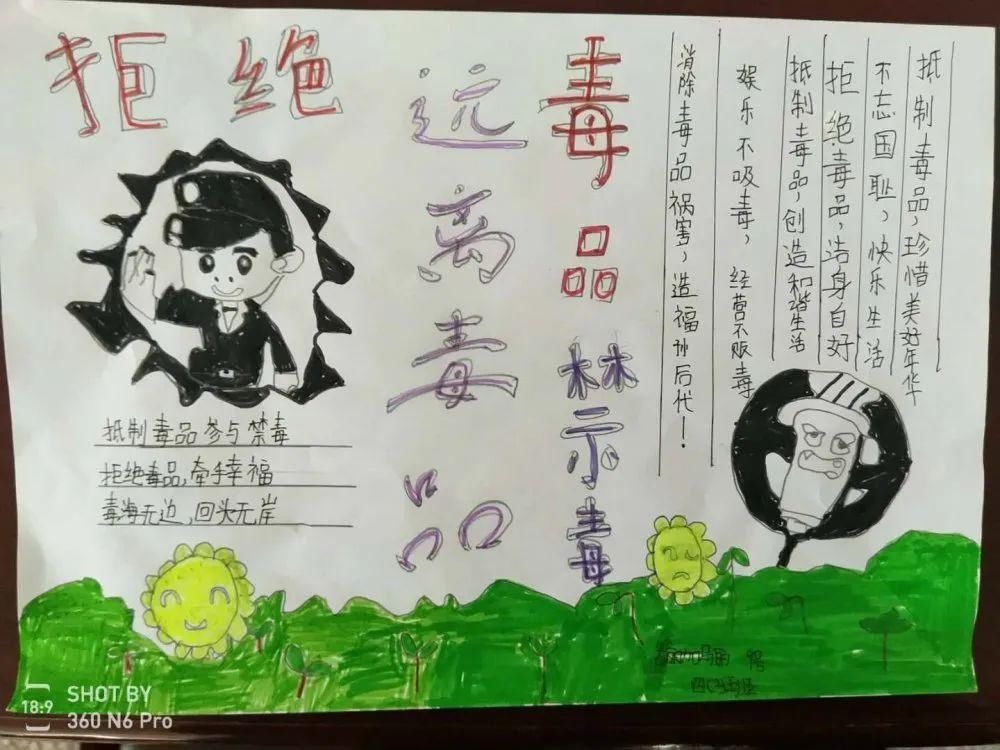 拒绝
毒品
远离毒品
禁毒
抵制毒品,珍惜美好年华
不忘国耻,快乐生活
拒绝毒品,洁身自好
抵制毒品,创造和谐生活
娱乐不吸毒,经营不贩毒
消除毒品祸害,造福 后代!
抵制毒品参与禁毒
拒绝毒品,牵手幸福
毒海无边,回头无岸
SHOT BY
18:9
360 N6 Pro